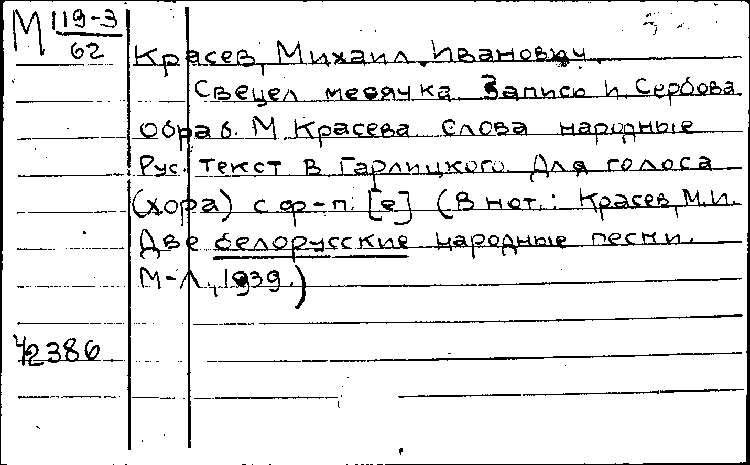 М 119-3
62
Красев, Михаил Иванович.
Свецел месячка. Запись И. Сербова
обраб. М. Красева. Слова народные
Рус. текст В. Гарлицкого. Для голоса
(хора) с ф-п. [e] (В нот.: Красев, М.И.
Две белорусские народные песни.
М-Л., 1939.)
42386